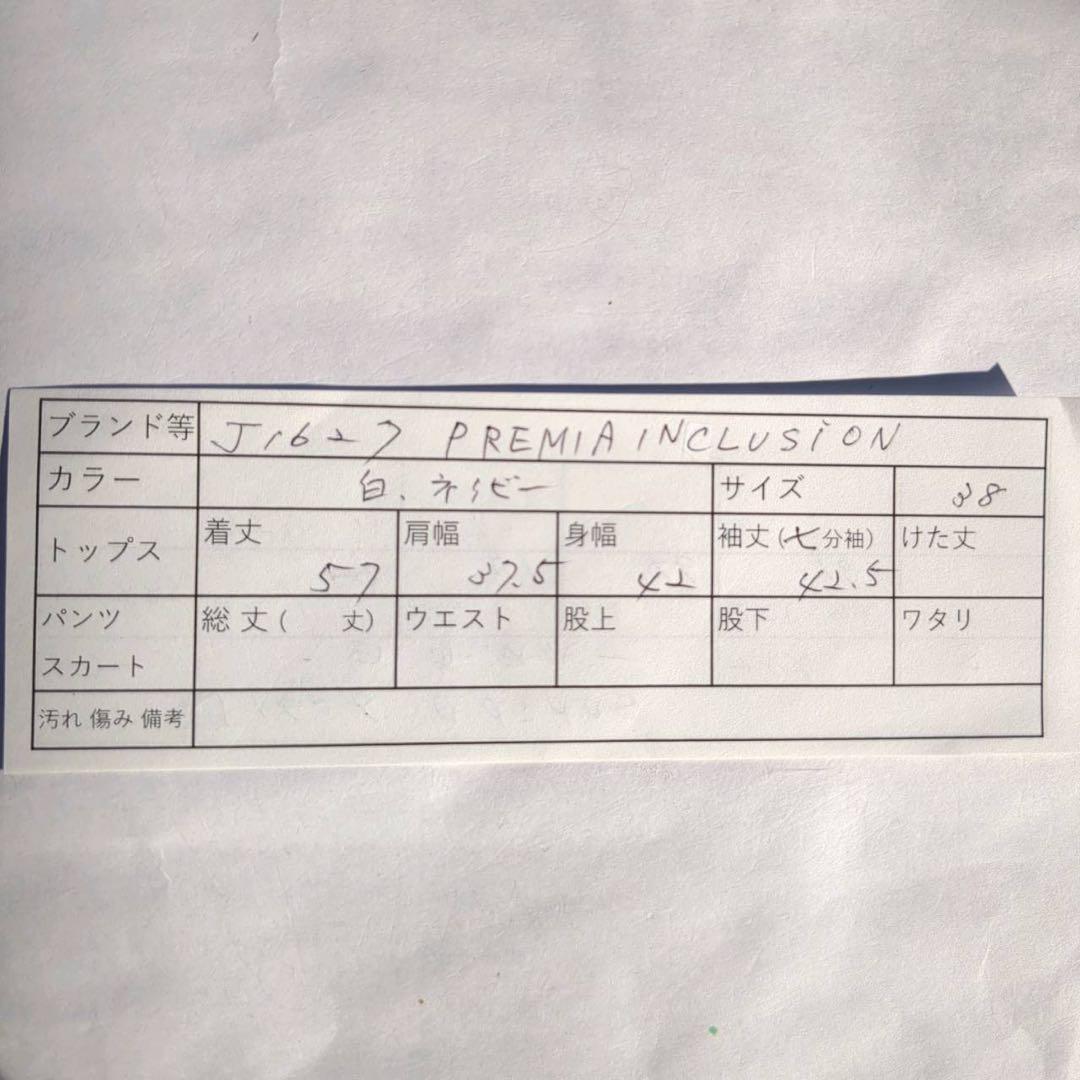 ブランド等 J1627 PREMIA INCLUSiON
カラー 白、ネイビー サイズ 38
トップス 着丈 57 肩幅 37.5 身幅 42 袖丈(七分袖) 42.5 けた丈
パンツ スカート 総丈(　丈) ウエスト 股上 股下 ワタリ
汚れ 傷み 備考